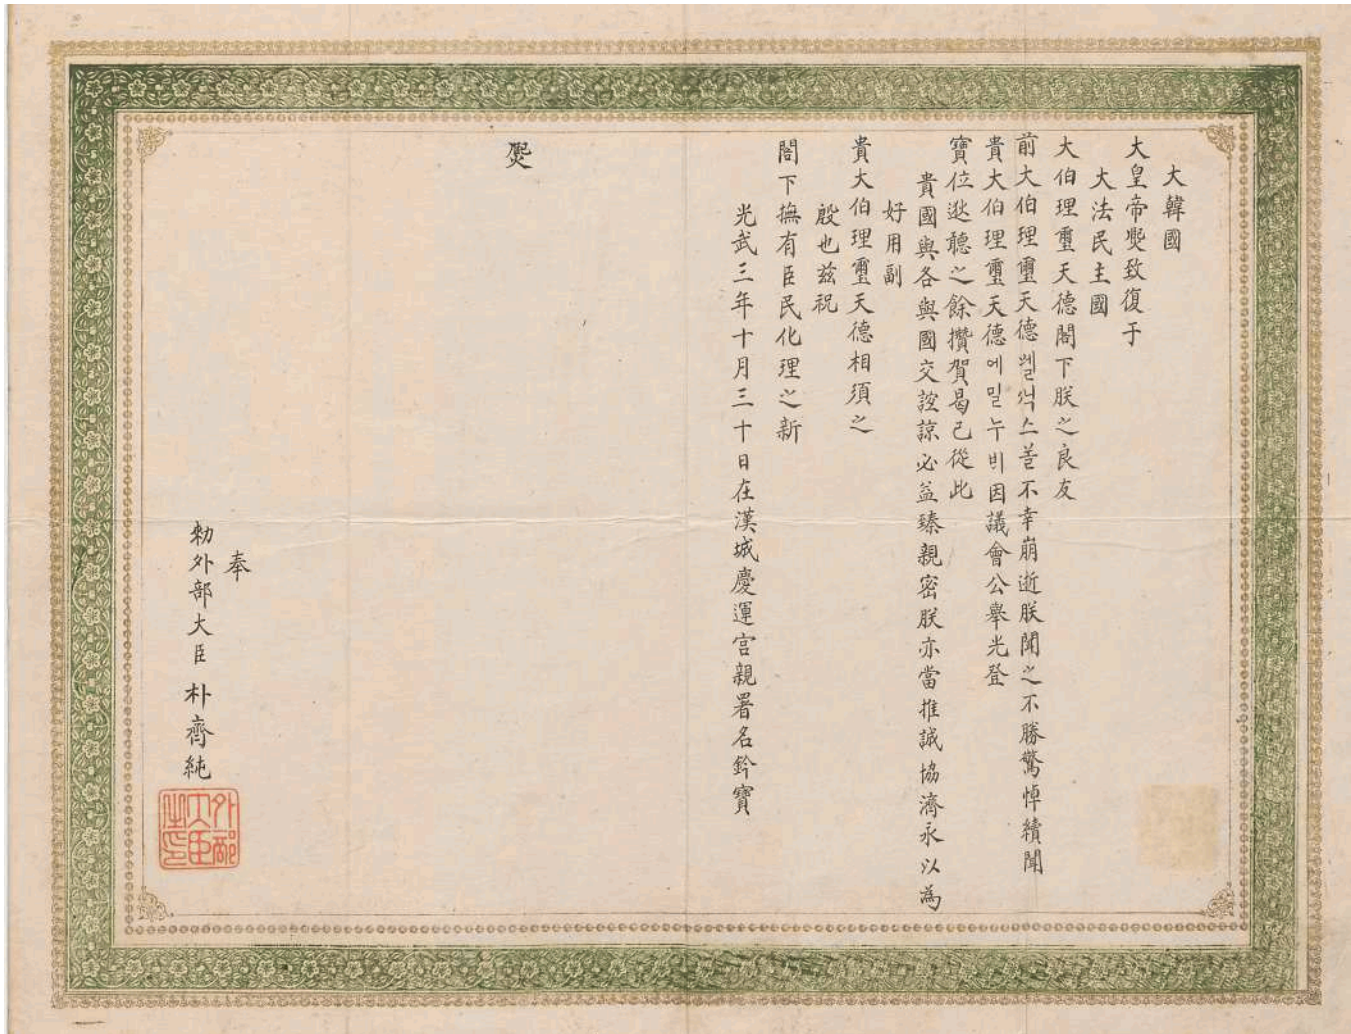 大韓國
大皇帝㷩致復于
大法民主國
大伯理璽天德閤下朕之良友
前大伯理璽天德不幸崩逝朕聞之不勝驚悼續聞
貴大伯理璽天德에밀누비因議會公舉光登
寶位逖聽之餘攢賀曷已從此
貴國與各與國交誼諒必益臻親密朕亦當推誠協濟永以為
好用副
貴大伯理璽天德相須之
殷也茲祝
閤下撫有臣民化理之新
光武三年十月三十日在漢城慶運宮親署名鈐寶
㷩
奉
勅外部大臣 朴齊純
外部
大臣
之印